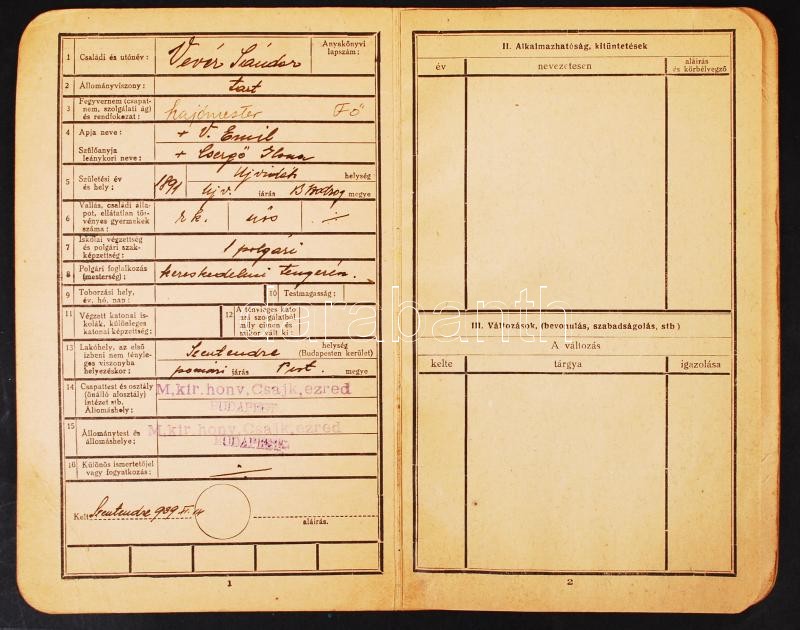 1 Családi és utónév: Vévér Sándor Anyakönyvi lapszám:
2 Állományviszony: tart
3 Fegyvernem (csapatnem, szolgálati ág) és rendfokozat: hajómester
4 Apja neve: + V. Emil
Szülőanyja leánykori neve: + Csergő Ilona
5 Születési év és hely: 1891 Ujvidék helység
Ujv. járás B Bodrog megye
6 Vallás, családi állapot, ellátatlan törvényes gyermekek száma: r. k. nős
7 Iskolai végzettség és polgári szakképzettség: 1 polgári
8 Polgári foglalkozás (mesterség): kereskedelmi tengerész.
9 Toborzási hely, év, hó, nap: 10 Testmagasság:
11 Végzett katonai iskolák, különleges katonai képzettség: 12 A tényleges katonai szolgálatból mily címen és mikor vált ki:
13 Lakóhely, az első ízben nem tényleges viszonyba helyezéskor: Szentendre helység (Budapesten kerület)
pomázi járás Pest. megye
14 Csapattest és osztály (önálló alosztály) intézet stb. Állomáshely: M. kir. honv. Csajk. ezred
BUDAPEST
15 Állománytest és állomáshelye: M. kir. honv. Csajk. ezred
BUDAPEST
16 Különös ismertetőjel vagy fogyatkozás:
Kelt Szentendre 939
aláírás.
1
II. Alkalmazhatóság, kitüntetések
év nevezetesen aláírás és körbélyegző
III. Változások, (bevonulás, szabadságolás, stb)
A változás
kelte tárgya igazolása
2
darabanth